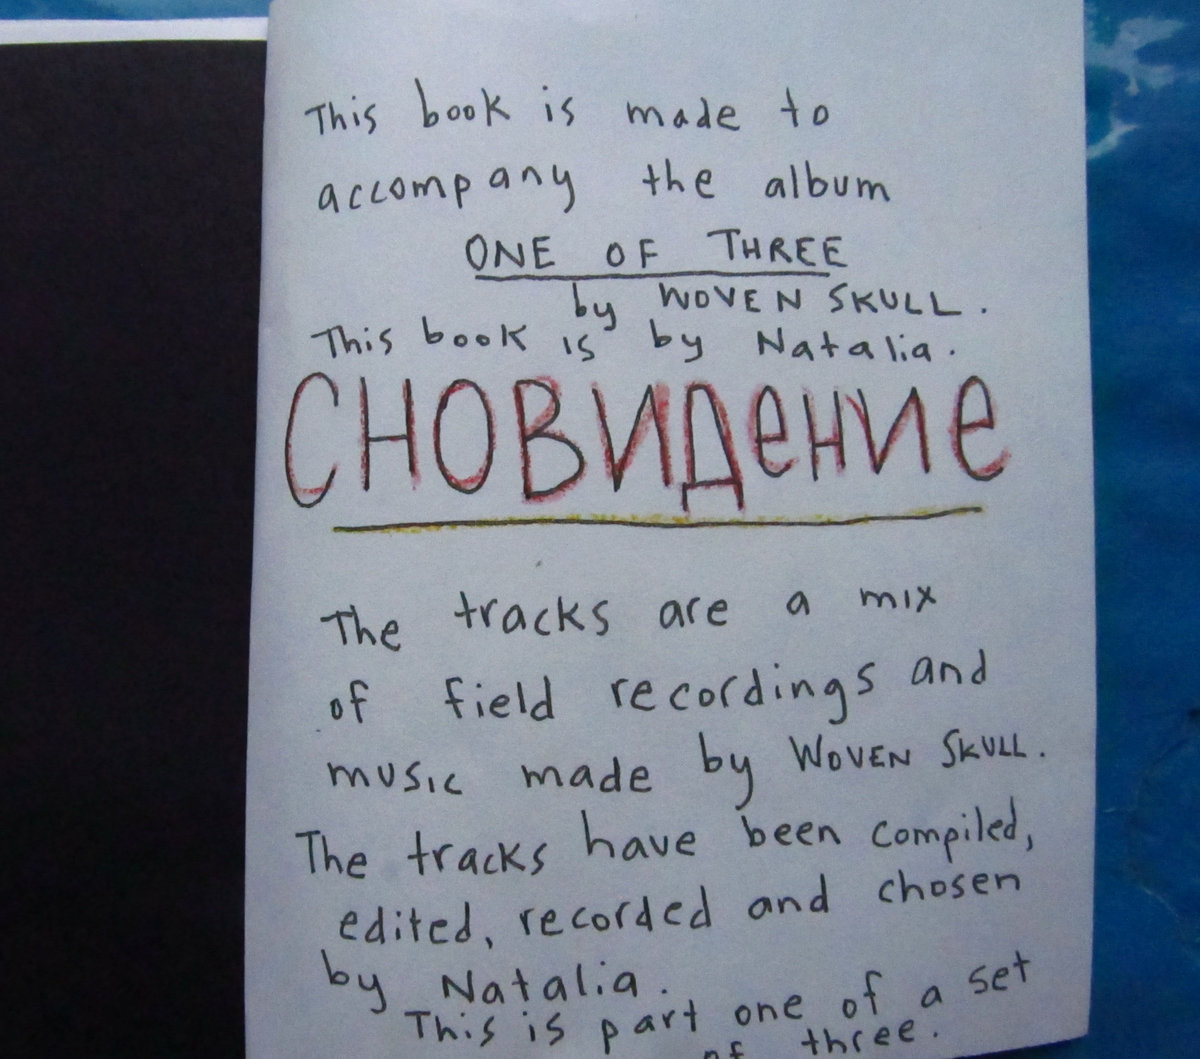 This book is made to
accompany the album
ONE OF THREE
by WOVEN SKULL.
This book is by Natalia.
СНОВИДЕНИЕ
The tracks are a mix
of field recordings and
music made by WOVEN SKULL.
The tracks have been compiled,
edited, recorded and chosen
by Natalia.
This is part one of a set
of three.